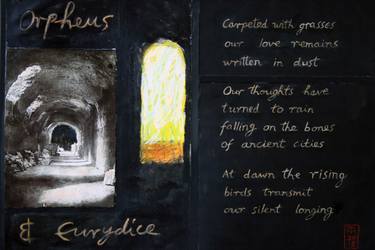 Orpheus
& Eurydice
Carpeted with grasses
our love remains
written in dust
Our thoughts have
turned to rain
falling on the bones
of ancient cities
At dawn the rising
birds transmit
our silent longing